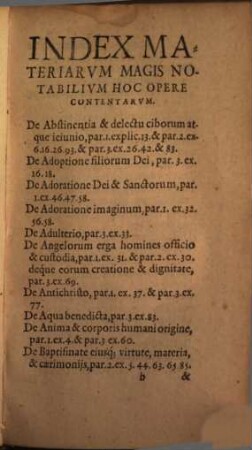 INDEX MA-
TERIARVM MAGIS NO-
TABILIVM HOC OPERE
CONTENTARVM.
De Abstinentia & delectu ciborum at
que ieiunio, par.1.explic.13. & par.2.ex.
6.16.26.93. & par.3.ex.26.42. & 83.
De Adoptione filiorum Dei, par. 3. ex.
16.18.
De Adoratione Dei & Sanctorum, par.
1.ex.46.47.58.
De Adoratione imaginum, par.1. ex.32.
56.58.
De Adulterio, par.3.ex.33.
De Angelorum erga homines officio
& custodia, par.1.ex. 31. & par.2. ex. 30.
deque eorum creatione & dignitate,
par. 3. ex.69.
De Antichristo, par.1. ex. 37. & par.3.ex.
77.
De Aqua benedicta, par.3.ex.83.
De Anima & corporis humani origine,
par.1.ex.4.& par.3 ex.60.
De Baptismate eiusq; virtute, materia,
& cærimonijs, par.2.ex.3. 44. 63. 65 85.
b &